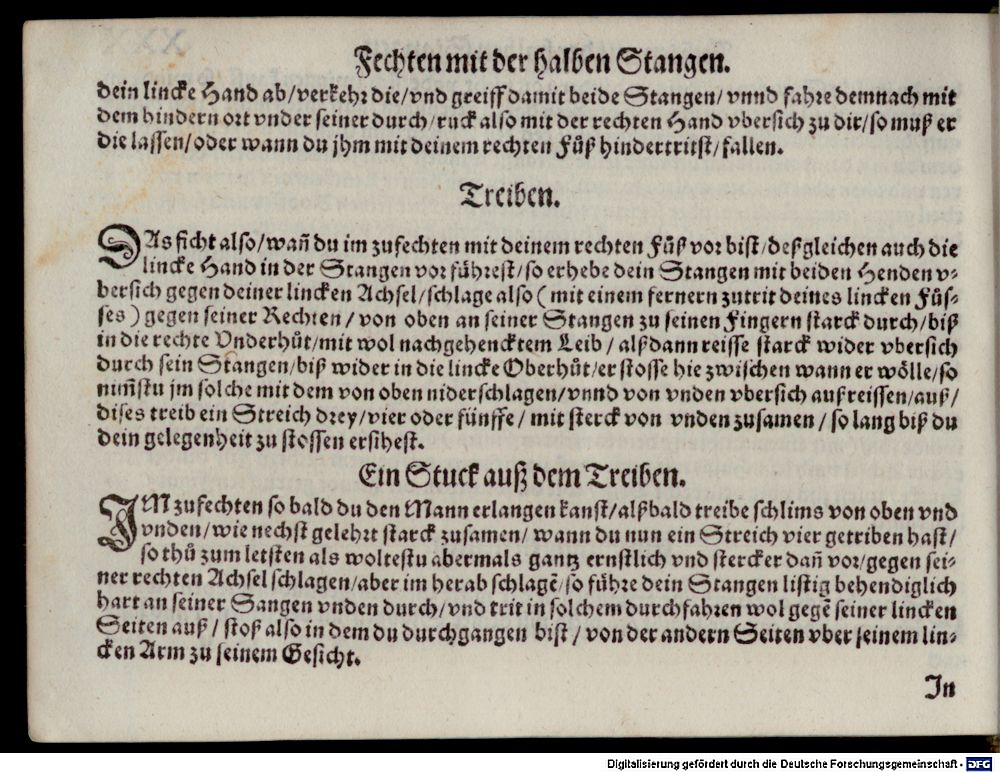 Fechten mit der halben Stangen.
dein lincke Hand ab/verkehr die/vnd greiff damit beide Stangen/vnnd fahre demnach mit
dem hindern ort vnder seiner durch/ruck also mit der rechten Hand vbersich zu dir/so muß er
die lassen/oder wann du jhm mit deinem rechten Füß hindertritst/fallen.
Treiben.
DAs ficht also/wañ du im zufechten mit deinem rechten Füß vor bist/deßgleichen auch die
lincke Hand in der Stangen vor führest/so erhebe dein Stangen mit beiden Henden v-
bersich gegen deiner lincken Achsel/schlage also (mit einem fernern zutrit deines lincken Füs-
ses) gegen seiner Rechten/von oben an seiner Stangen zu seinen Fingern starck durch/biß
in die rechte Vnderhůt/mit wol nachgehencktem Leib/alßdann reisse starck wider vbersich
durch sein Stangen/biß wider in die lincke Oberhůt/er stosse hie zwischen wann er wölle/so
nim̃stu jm solche mit dem von oben niderschlagen/vnnd von vnden vbersich aufreissen/auß/
dises treib ein Streich drey/vier oder fünffe/mit sterck von vnden zusamen/so lang biß du
dein gelegenheit zu stossen ersihest.
Ein Stuck auß dem Treiben.
IM zufechten so bald du den Mann erlangen kanst/alßbald treibe schlims von oben vnd
vnden/wie nechst gelehrt starck zusamen/wann du nun ein Streich vier getriben hast/
so thů zum letsten als woltestu abermals gantz ernstlich vnd stercker dañ vor/gegen sei-
ner rechten Achsel schlagen/aber im herab schlagẽ/so führe dein Stangen listig behendiglich
hart an seiner Sangen vnden durch/vnd trit in solchem durchfahren wol gegẽ seiner lincken
Seiten auß/stoß also in dem du durchgangen bist/von der andern Seiten vber seinem lin-
cken Arm zu seinem Gesicht.
In
Digitalisierung gefördert durch die Deutsche Forschungsgemeinschaft - DFG